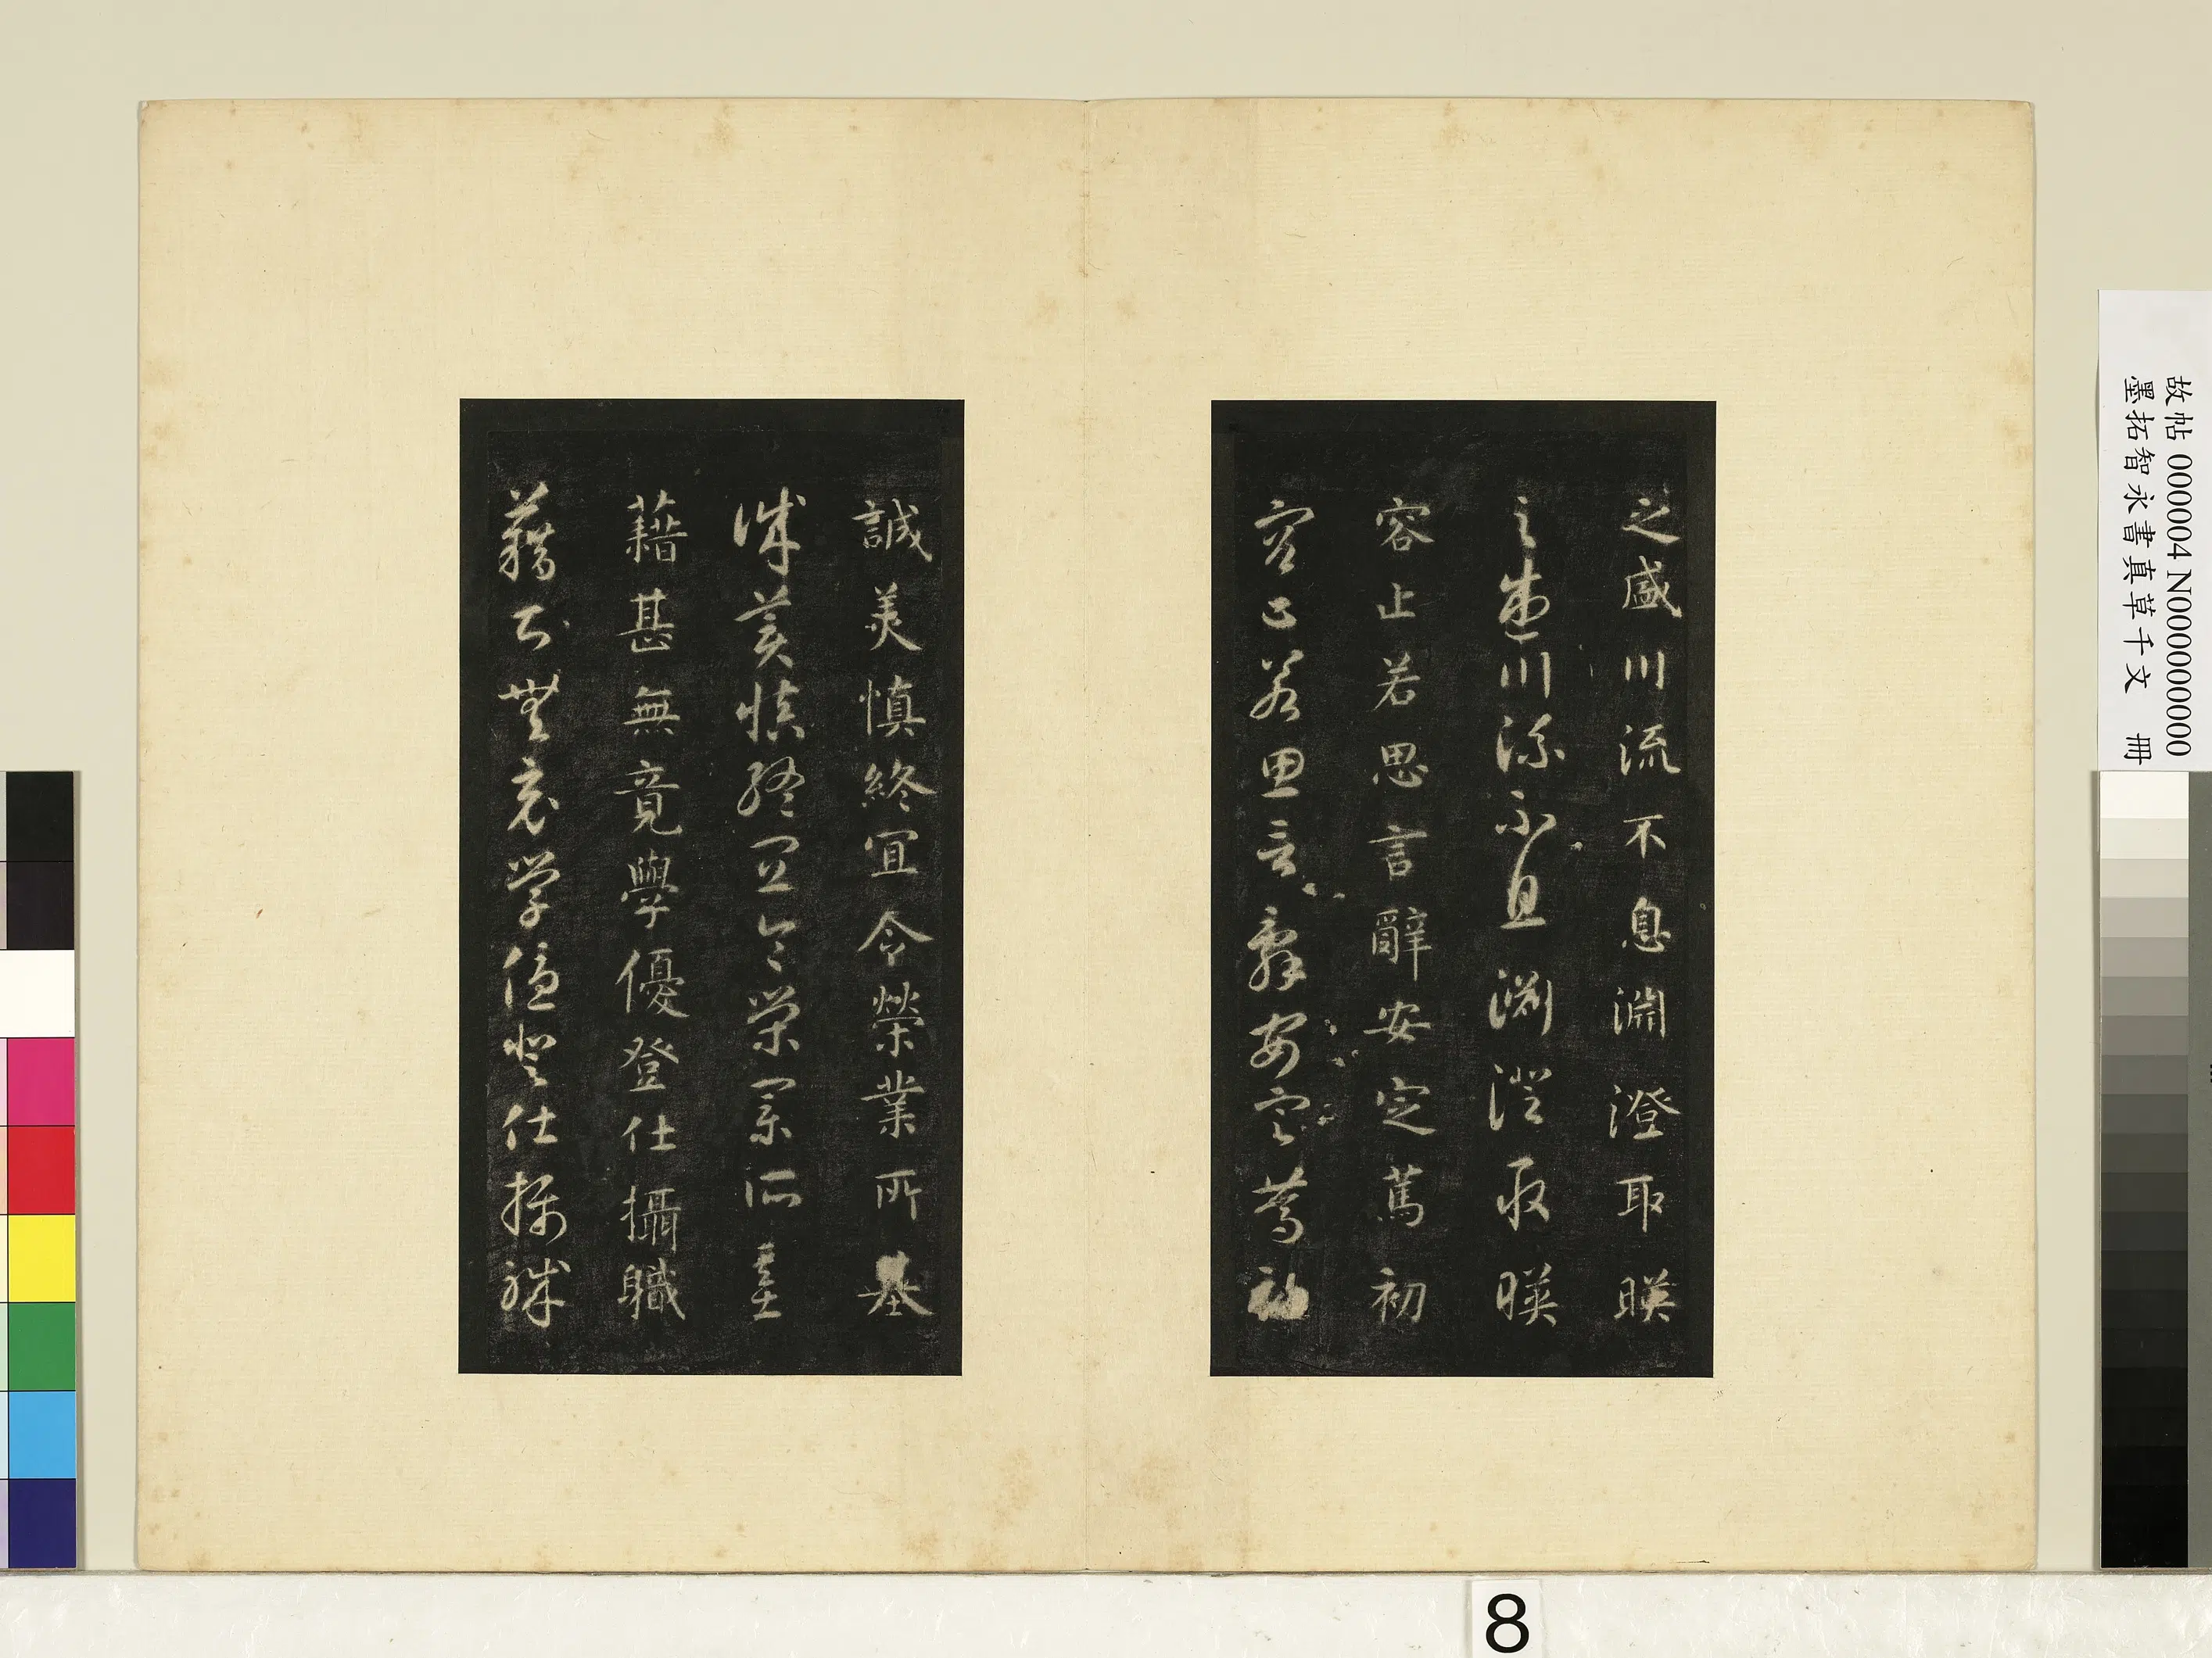 之盛川流不息淵澄取暎
之盛川流不息淵澄取暎
容止若思言辭安定篤初
容止若思言辭安定篤初
誠美慎終宜令榮業所基
誠美慎終宜令榮業所基
藉甚無竟學優登仕攝職
藉甚無竟學優登仕攝職
故帖 000004 N000000000
墨拓智永書真草千文 冊
8